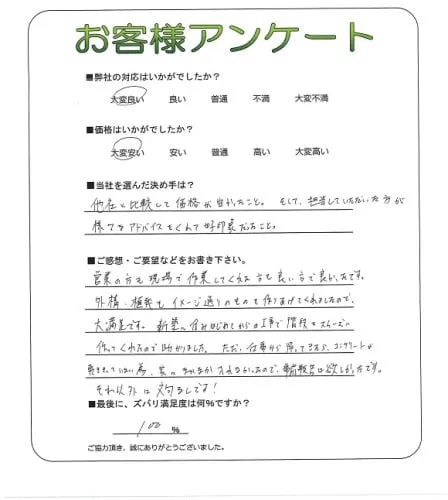 お客様アンケート
■弊社の対応はいかがでしたか？
大変良い 良い 普通 不満 大変不満
■価格はいかがでしたか？
大変安い 安い 普通 高い 大変高い
■当社を選んだ決め手は？
他社と比較して価格が安かったこと。そして、担当していただいた方が
様々なアドバイスをくれて好印象だったこと。
■ご感想・ご要望などをお書き下さい。
営業の方も現場で作業してくれる方も良い方で良かったです。
外構・植栽もイメージ通りのものを作りあげてくれましたので、
大満足です。新築に住みはじめてからの工事で階段をスムーズに
作ってくれたので助かりました。ただ、仕事から帰ってきたら、コンクリートが
為、家に かったので、 欲しかったです
それ以外は文句なしです！
■最後に、ズバリ満足度は何%ですか？
100 %
ご協力頂き、誠にありがとうございました。